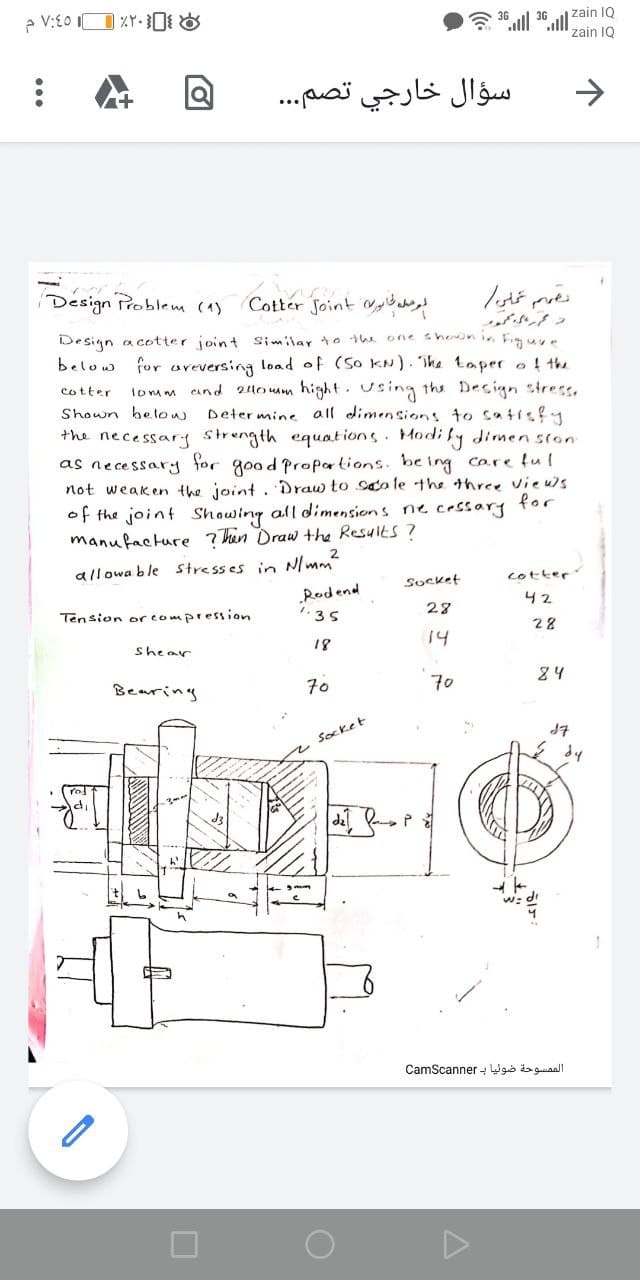 zain IQ
zain IQ
3G
3G
٧:٤٥ م
٪٢٠
سؤال خارجي تصم...
Design Problem (1) Cotter Joint
Design a cotter joint Similar to the one shown in Figure
below for a reversing load of (50 KN). The taper of the
cotter 10mm and 240mm hight. Using the Design stress.
Shown below Determine all dimensions to satisfy
the necessary strength equations. Modify dimension
as necessary for good Proportions. being careful
not weaken the joint. Draw to Scale the three views
of the joint Showing all dimensions necessary for
manufacture ? Then Draw the Results ?
allowable stresses in N/mm²
Rod end Socket cotter
Tension or compression 35 28 42
28
Shear 18 14
Bearing 70 70 84
socket
rod
d1
3mm
d3
d2
P
d7
d4
h'
t b h a 3mm c
w = d1/4
الممسوحة ضوئيا بـ CamScanner